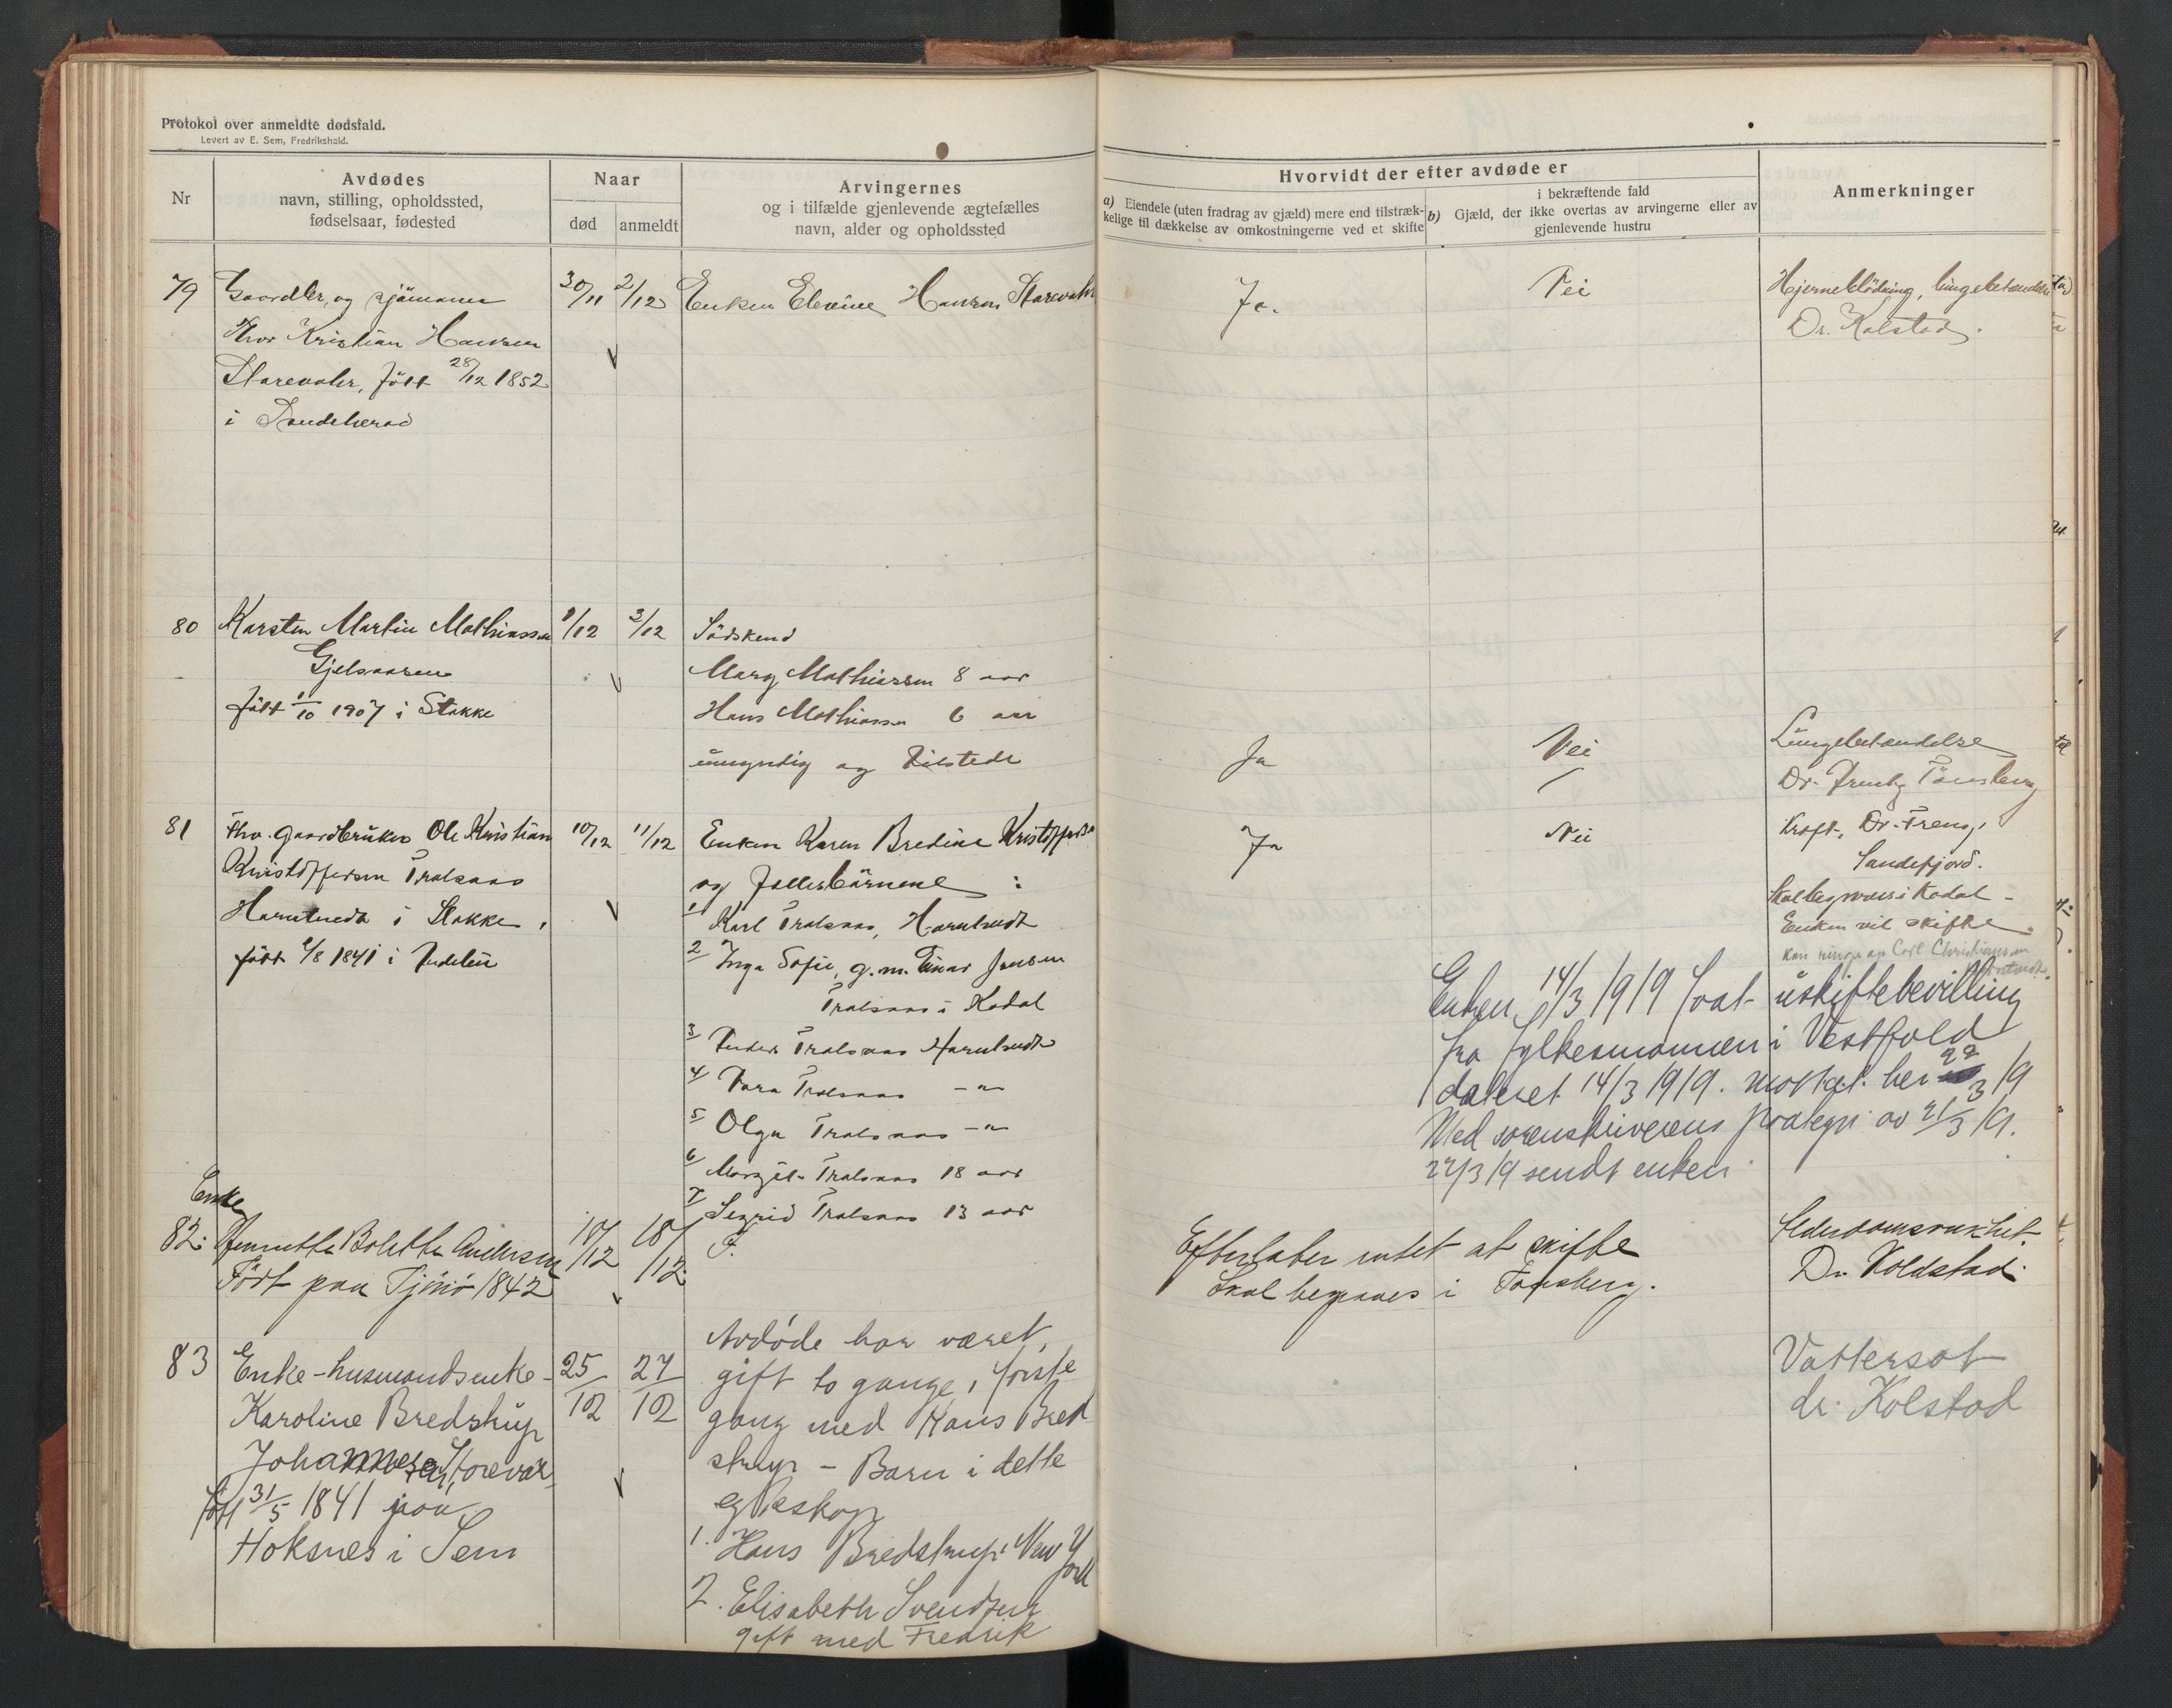 Protokol over anmeldte dødsfald.
Levert av E. Sem, Fredrikshald.
Nr
Avdødes
navn, stilling, opholdssted,
fødselsaar, fødested
Naar
død
anmeldt
Arvingernes
og i tilfælde gjenlevende ægtefælles
navn, alder og opholdssted
Hvorvidt der efter avdøde er
a) Eiendele (uten fradrag av gjæld) mere end tilstræk-
kelige til dækkelse av omkostningerne ved et skifte
i bekræftende fald
b) Gjæld, der ikke overtas av arvingerne eller av
gjenlevende hustru
Anmerkninger
79 Gaardbr. og sjömann 30/11 2/12 Enken Elevine Hansen Starevahr Ja. Nei Hjerneblödning, lungebetændelse
Thor Kristian Hansen Dr. Kolstad.
Starevahr, född 28/12 1852
i Sandeherad
80 Karsten Martin Mathiassen 1/12 3/12 Södskend
Gjelsaasen Marg Mathiassen 8 aar
født 1/10 1907 i Stokke Hans Mathiassen 6 aar
umyndig og tilstede Ja Nei Lungebetændelse
Dr. Tönsberg
81 Fhv. gaardbruker Ole Kristian 10/12 11/12 Enken Karen Bredine Kristoffersen Ja Nei Kræft, Dr. Freng,
Kristoffersen Tralsaas og fællesbörnene: Sandefjord.
Harntvedt i Stokke, 1/ Karl Tralsaas, Harntvedt Skal begraves i Kodal -
født 2/8 1841 i Andebu 2/ Inga Sofie, g.m. Einar Jensen Enken vil skifte.
Tralsaas i Kodal Kan ringe op Carl Christiansen
3/ Anders Tralsaas Harntvedt Enken 14/3 1919 faat uskiftebevilling
4/ Tralsaas - " - fra fylkesmannen i Vestfold
5/ Olga Tralsaas - " - datert 14/3 1919. mottat her 22/3 19
6/ Margit Tralsaas 18 aar Med sorenskriverens paategn. av 21/3 19.
7/ Sigrid Tralsaas 13 aar 22/3 19 sendt enken.
Enke
82. Bolette Andersen 17/12 18/12. F. Efterlater intet at skifte Alderdomssvakhet.
Født paa Tjømø 1842 Skal begraves i Tønsberg. Dr. Koldstad.
83 Enke - husmandsenke - 25/12 27/12 Avdøde har været Vattersot
Karoline Bredstrup gift to gange, første dr. Kolstad
Johannesen, Storevar gang med Hans Bred
født 31/5 1841 paa strup - Barn i dette
Hoksnes i Sem egteskap
1. Hans Bredstrup New York
2. Elisabeth Svendsen
gift med Fredrik